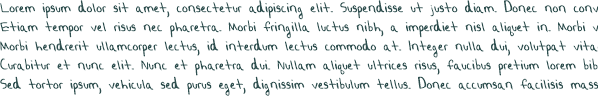 Lorem ipsum dolor sit amet, consectetur adipiscing elit. Suspendisse ut justo diam. Donec non conv
Etiam tempor vel risus nec pharetra. Morbi fringilla luctus nibh, a imperdiet nisl aliquet in. Morbi v
Morbi hendrerit ullamcorper lectus, id interdum lectus commodo at. Integer nulla dui, volutpat vita
Curabitur et nunc elit. Nunc et pharetra dui. Nullam aliquet ultrices risus, faucibus pretium lorem bib
Sed tortor ipsum, vehicula sed purus eget, dignissim vestibulum tellus. Donec accumsan facilisis mass